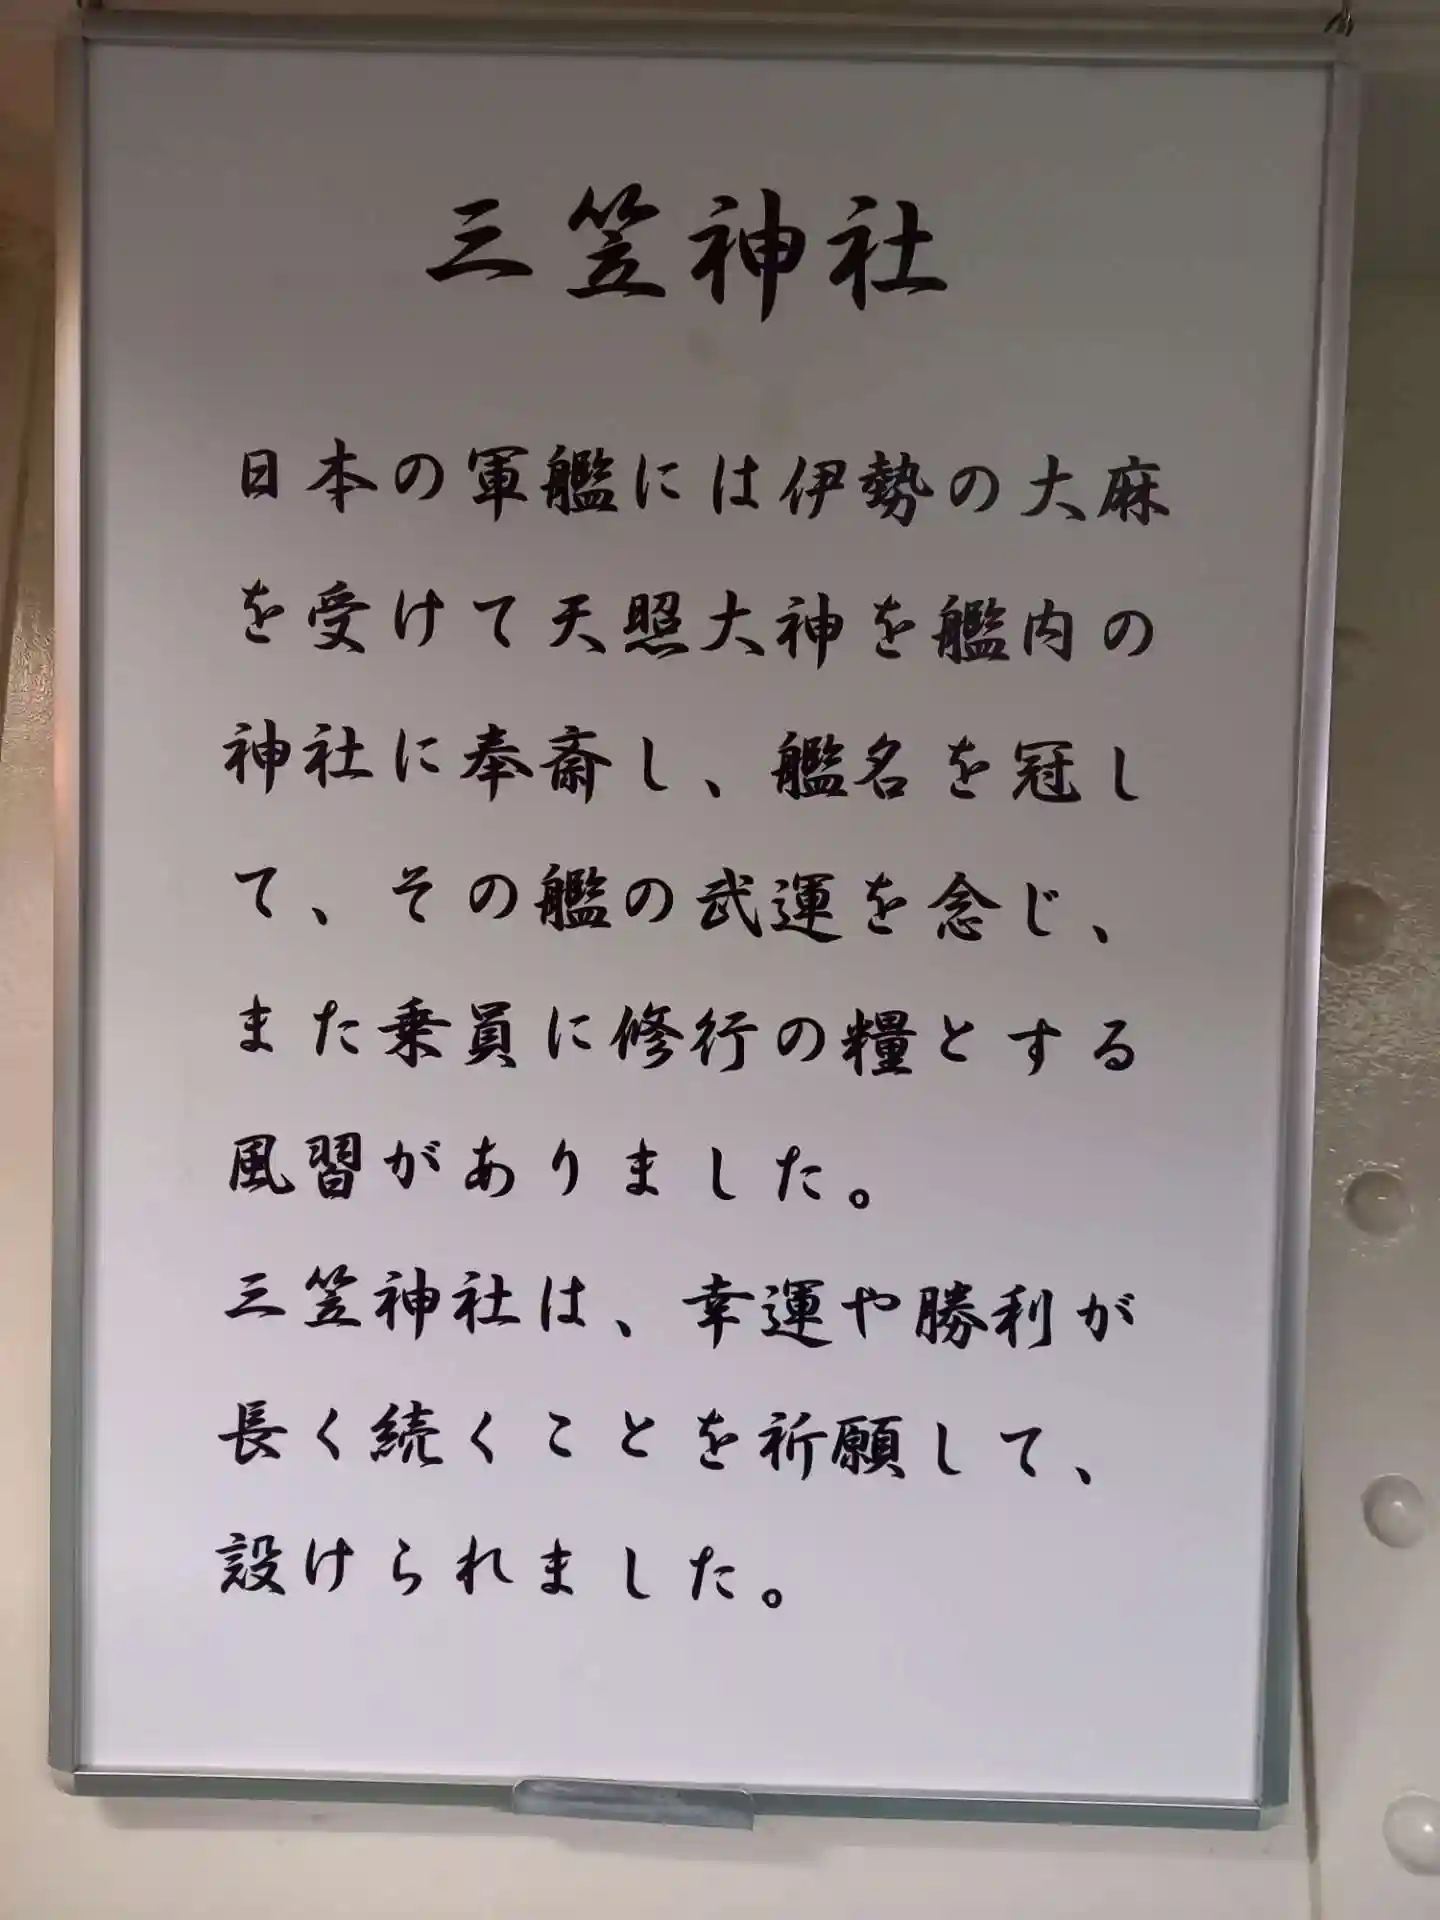 三笠神社
日本の軍艦には伊勢の大麻
を受けて天照大神を艦内の
神社に奉斎し、艦名を冠し
て、その艦の武運を念じ、
また乗員に修行の糧とする
風習がありました。
三笠神社は、幸運や勝利が
長く続くことを祈願して、
設けられました。